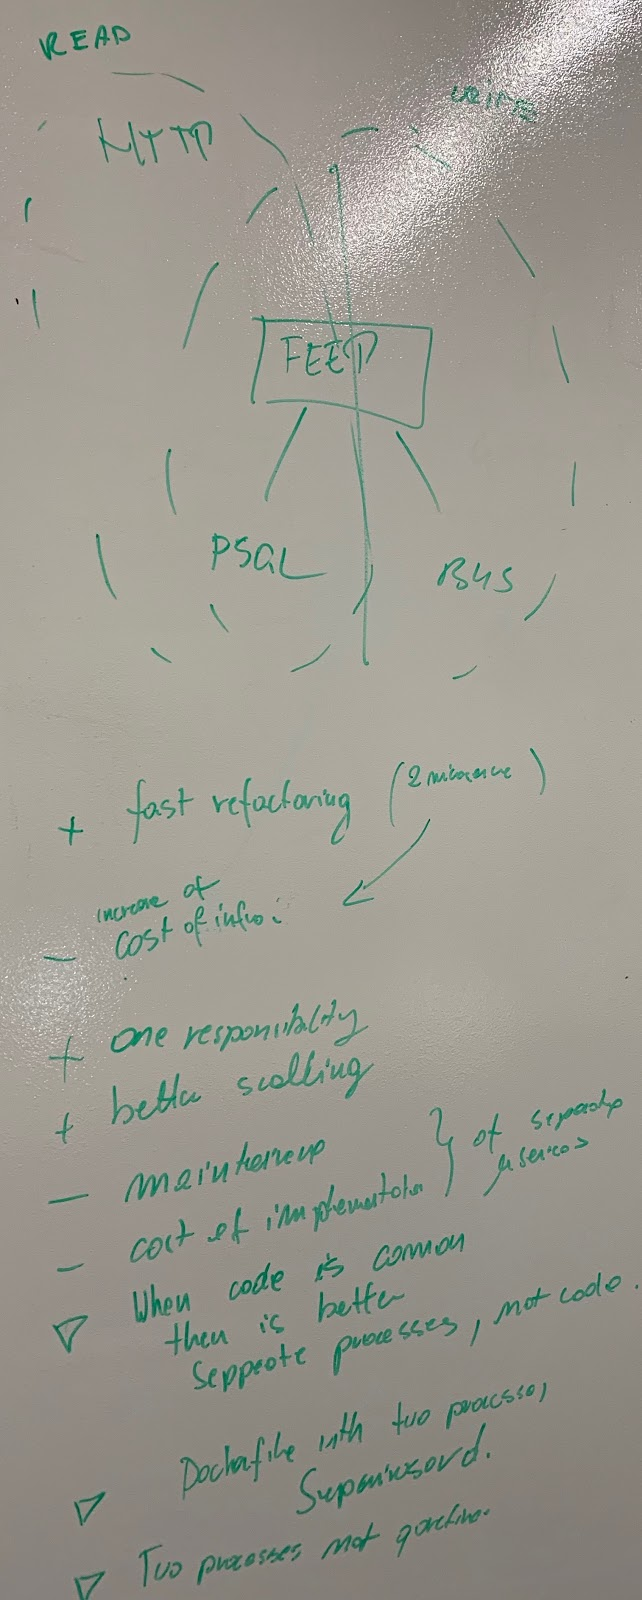 READ
WRITE
HTTP
FEED
PSQL
BUS
+ fast refactoring (2 )
increase of
- cost of infra:
+ one responsibility
+ better scalling
-
- cost of } of separate
▽ When code is common
then is better
sepprate processes, not code.
▽ Dockerfile with two processes,
Supervisord.
▽ Two processes not goroutine.